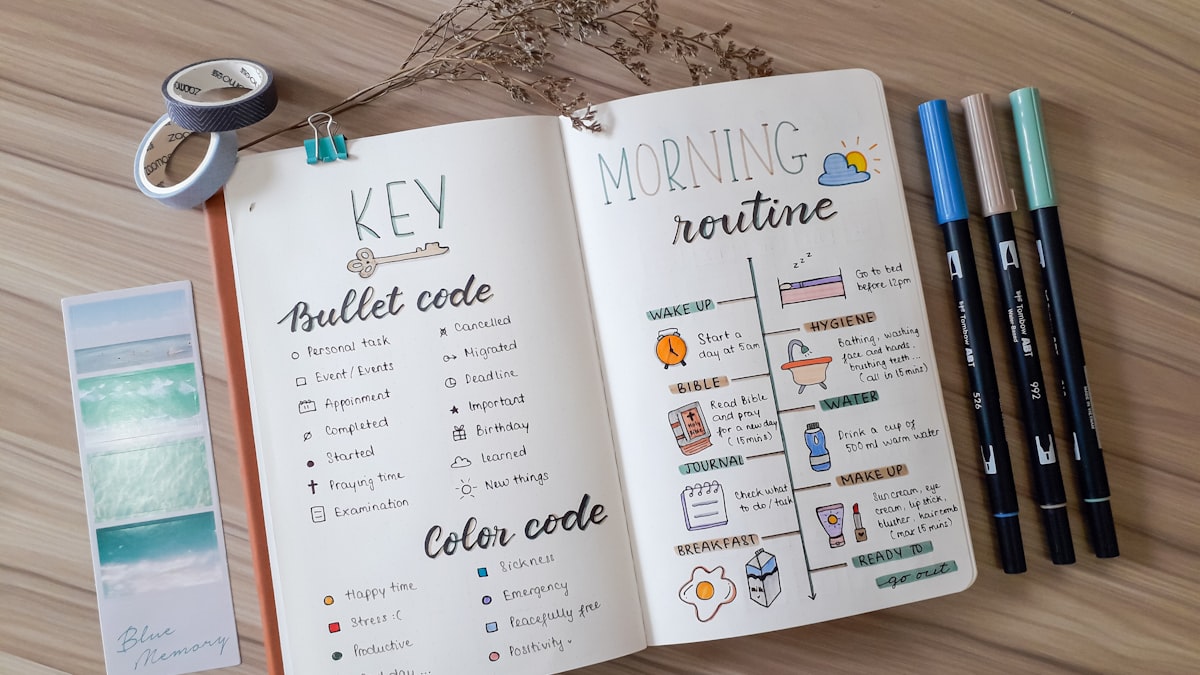 KEY
Bullet code
Personal task
Event/Events
Appoinment
Completed
Started
Praying time
Examination
Cancelled
Migrated
Deadline
Important
Birthday
Learned
New things
Color code
Happy time
Stress :(
Productive
Sickness
Emergency
Peacefully free
Positivity
MORNING
routine
zzz
Go to bed
before 12pm
WAKE UP
Start a
day at 5am
HYGIENE
Bathing, washing
face and hands.
brusting teeth...
(all in 15mins)
BIBLE
Holy
Bible
Read Bible
and pray
for a new day
(15mins)
WATER
Drink a cup of
500ml warm water
JOURNAL
Check what
to do/task
MAKE UP
Sun cream, eye
cream, lip stick,
blusher, hair comb
(max 15 mins)
BREAKFAST
READY TO
go out
Blue
Memory
ZOOMOO
Tombow ABT
526
Tombow ABT
Water Based
992